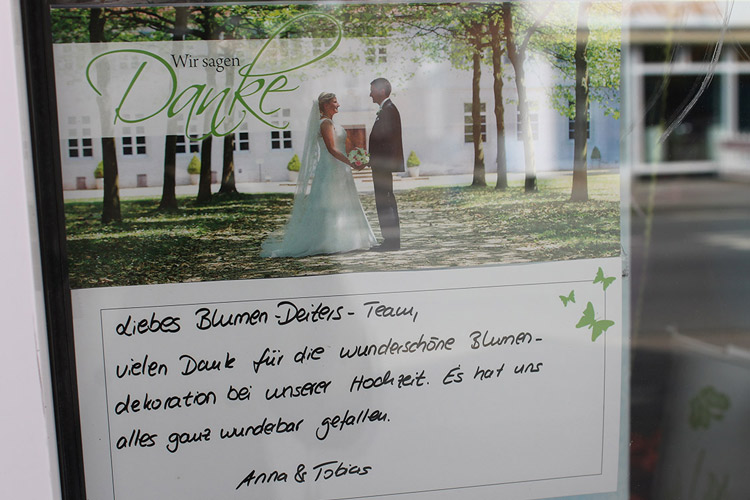 Wir sagen
Danke
Liebes Blumen-Deiters-Team,
vielen Dank für die wunderschöne Blumen-
dekoration bei unserer Hochzeit. Es hat uns
alles ganz wunderbar gefallen.
Anna & Tobias